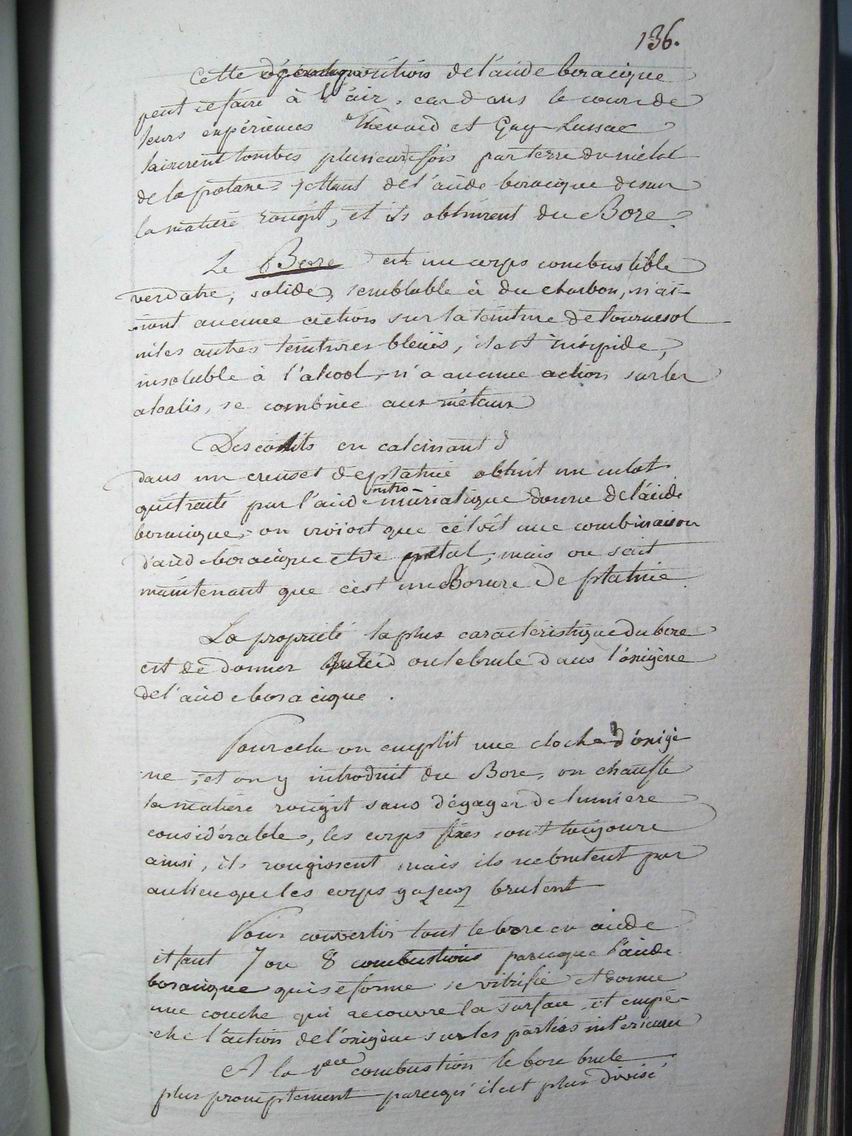 136.
Cette décomposition de l'acide boracique
peut se faire à l'air, car dans le cours de
leurs expériences Thenard et Gay Lussac
laisserent tomber plusieurs fois par terre du métal
de la potasse jettant de l'acide boracique dessus
la matiere rougit, et ils obtinrent du Bore.
Le Bore est un corps combustible
verdatre, solide, semblable à du charbon, n'ai-
iant aucune action sur la teinture de tournesol
ni les autres teintures bleües, il est insipide,
insoluble à l'alcool, n'a aucune action sur les
alcalis, se combine aux métaux
Descotils en calcinant
dans un creuset de platine obtint un culot
qui traité par l'acide nitro-muriatique donne de l'acide
boracique, on croioit que c'étoit une combinaison
d'acide boracique et de metal, mais on sait
maintenant que c'est un Borure de platine.
La propriété la plus caractéristique du bore
est de donner on le brule dans l'oxigène
de l'acide boracique.
Pour cela on emplit une cloche d'oxigè
ne, et on y introduit du Bore, on chauffe
la matiere rougit sans dégager de lumiere
considérable, les corps fixes sont toujours
ainsi, ils rougissent mais ils ne brulent pas
au lieu que les corps gazeux brulent
Pour convertir tout le bore en acide
il faut 7 ou 8 combustions parceque l'acide
boracique qui se forme se vitrifie et forme
une couche qui recouvre la surface, et empê-
che l'action de l'oxigène sur les parties interieures
A la 1ere combustion le bore brule
plus promptement parcequ'il est plus divisé